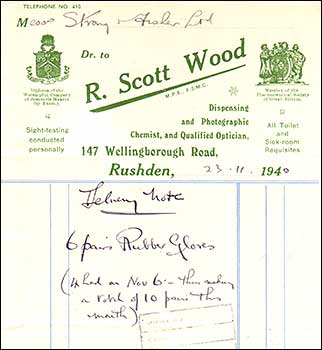 TELEPHONE NO. 410.
Mess Strong & Fisher Ltd
Dr. to
R. Scott Wood
M.P.S., F.S.M.C.
Diploma of the
Worshipful Company
of Spectacle Makers
(by Exam.)
Member of the
Pharmaceutical Society
of Great Britain.
Sight-testing
conducted
personally
Dispensing
and Photographic
Chemist, and Qualified Optician,
All Toilet
and
Sick-room
Requisites
147 Wellingborough Road,
Rushden, 23-11 1940
Delivery Note
6 pairs Rubber Gloves
(4 had on Nov 6 - Thus making
a total of 10 pairs this
month)